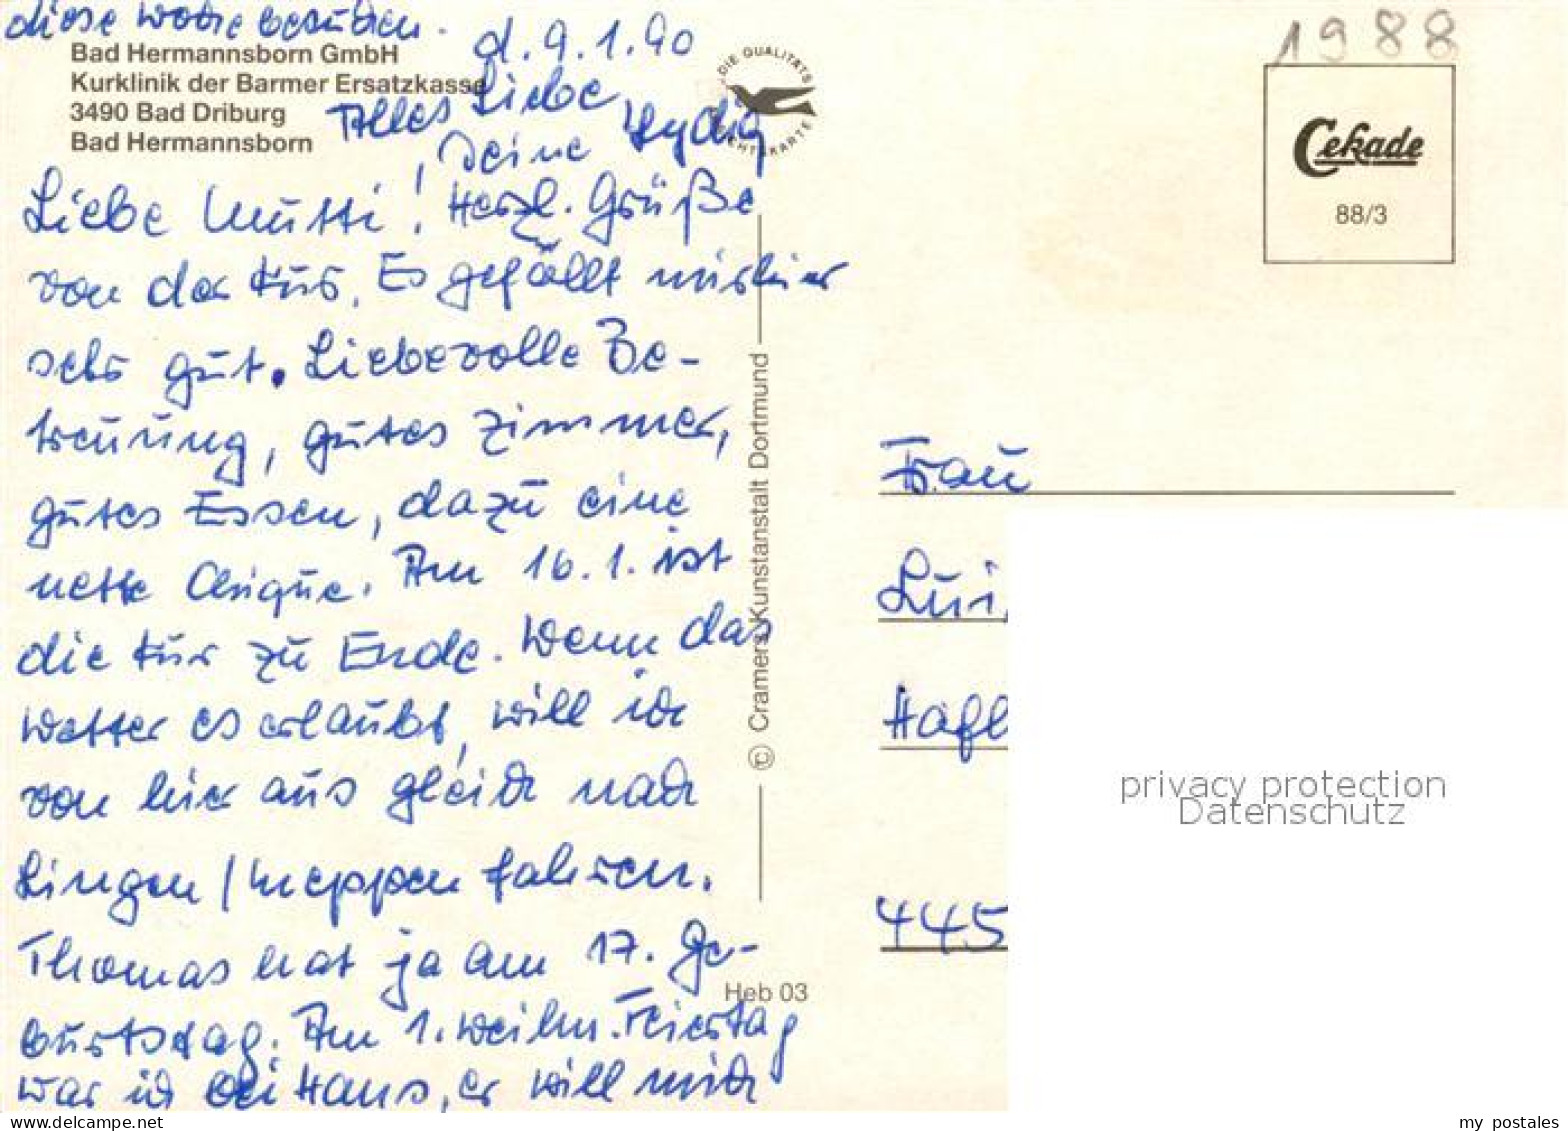 diese Woche besuchen.
d. 9.1.90
1988
Bad Hermannsborn GmbH
Kurklinik der Barmer Ersatzkasse
3490 Bad Driburg
Bad Hermannsborn
Alles Liebe
Deine
DIE QUALITÄTS
Cekade
88/3
Liebe Mutti! Herzl. Grüße
von der Kur. Es gefällt mir hier
sehr gut. Liebevolle Be-
treuung, gutes Zimmer,
gutes Essen, dazu eine
nette Clique. Am 16.1. ist
die Kur zu Ende. Wenn das
Wetter es erlaubt, will ich
von hier aus gleich nach
Lingen/Meppen fahren.
Thomas hat ja am 17. Ge-
burtstag. Am 1. Weihn. Feiertag
war ich bei Hans, er will mich
© Cramers Kunstanstalt Dortmund
Heb 03
Frau
Lui
Hafl
445
privacy protection
Datenschutz
www.delcampe.net
my_postales